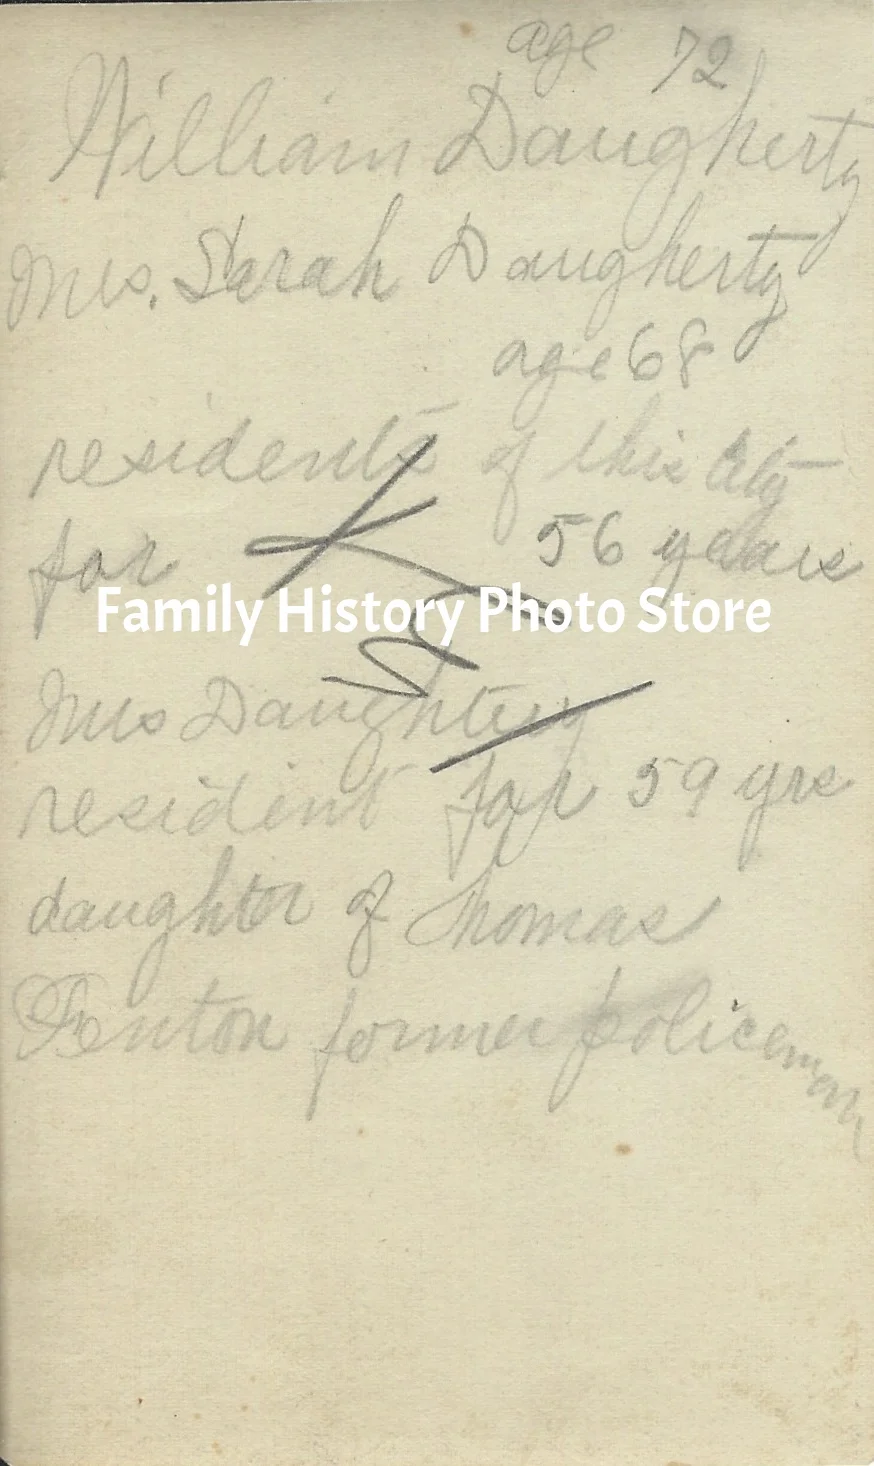 age 72
William Daugherty
Mrs. Sarah Daugherty
age 68
residents of this City
for 56 years
Family History Photo Store
Mrs Daughtery
resident for 59 yrs
daughter of Thomas
Fenton former policeman